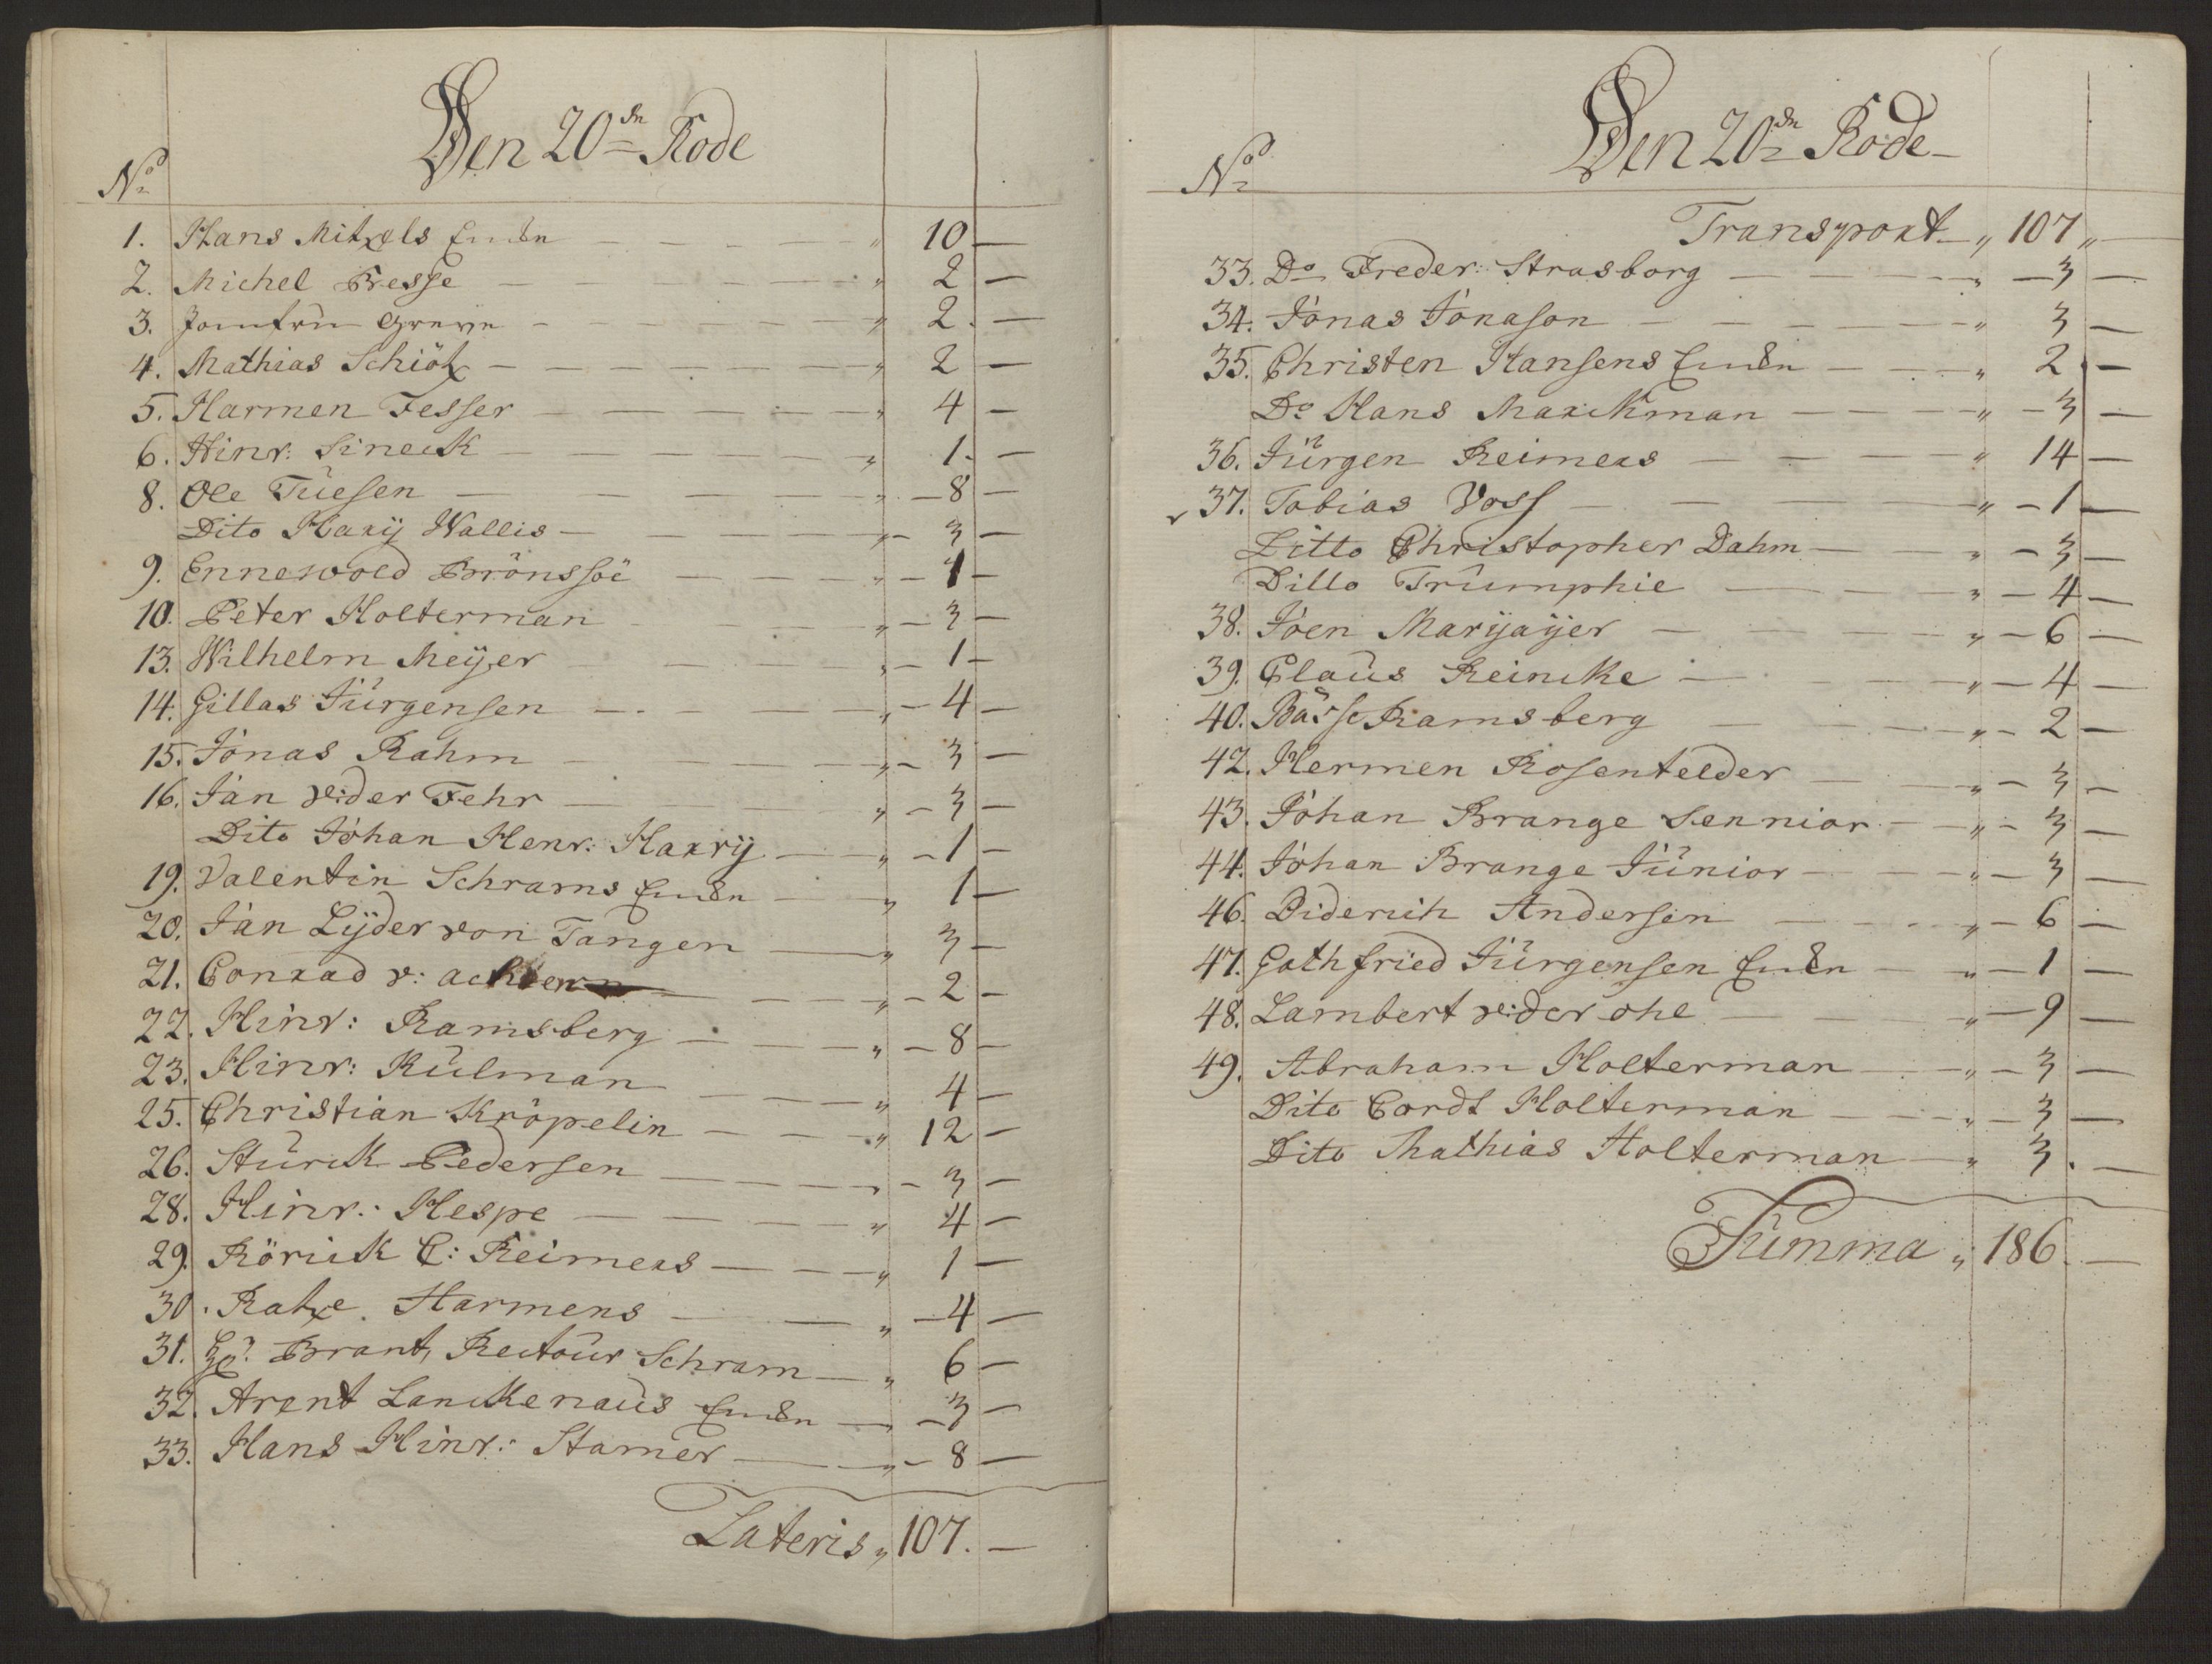 Den 20de Rode
No
1. Hans Mitzels Enken „ 10 —
2. Michel Bresse „ 2 —
3. Jomfru Greven „ 2. —
4. Mathias Schiötz „ 2 —
5. Harmen Fesser „ 4 —
6. Hinr: Sineck „ 1. —
8. Ole Tuesen „ 8 —
Dito Harij Wallis „ 3 —
9. Ennewold Brönssöe „ 1 —
10. Peter Holterman „ 3 —
13. Wilhelm Meÿer „ 1 —
14. Gillas Jürgensen „ 4 —
15. Jonas Rahm „ 3 —
16. Jan v: der Fehr „ 3 —
Dito Johan Henr: Harrij „ 1 —
19. Valentin Schrams Enken „ 1 —
20. Jan Lÿder von Tangen „ 3 —
21. Conrad v: achtern „ 2 —
22. Hinr: Ramsberg „ 8 —
23. Hinr: Kulman „ 4 —
25. Christian Kröpelin „ 12 —
26. Sturck Pedersen „ 3 —
28. Hinr: Hespe „ 4 —
29. Rörick C: Reimers „ 1 —
30. Ratze Harmens „ 4 —
31. Brant, Rectour Schram „ 6 —
32. Arent Lanckenaus Enken „ 3 —
33. Hans Hinr: Stamer „ 8 —
Lateris „ 107. —
Den 20de Rode
No
Transport „ 107 „ —
33. Do Freder: Strasborg „ 3 —
34. Jonas Jonason „ 3 —
35. Christen Hansens Enken „ 2 —
Do Hans Marckman „ 3 —
36. Jürgen Reimers „ 14 —
37. Tobias Voss „ 1 —
Ditto Christopher Dahm „ 3 —
Ditto Trumphie „ 4 —
38. Joen Marijaÿer „ 6 —
39. Claus Reincke „ 4 —
40. Basse Ramsberg „ 2 —
42. Hermen Rosenfelder „ 3 —
43. Johan Brange Sennior „ 3 —
44. Johan Brange Junior „ 3 —
46. Diderich Andersen „ 6 —
47. Gothfried Jürgensen Enken „ 1 —
48. Lambert v: der ohe „ 9 —
49. Abraham Holterman „ 3 —
Dito Cordt Holterman „ 3 —
Dito Mathias Holterman „ 3. —
Summa „ 186. —